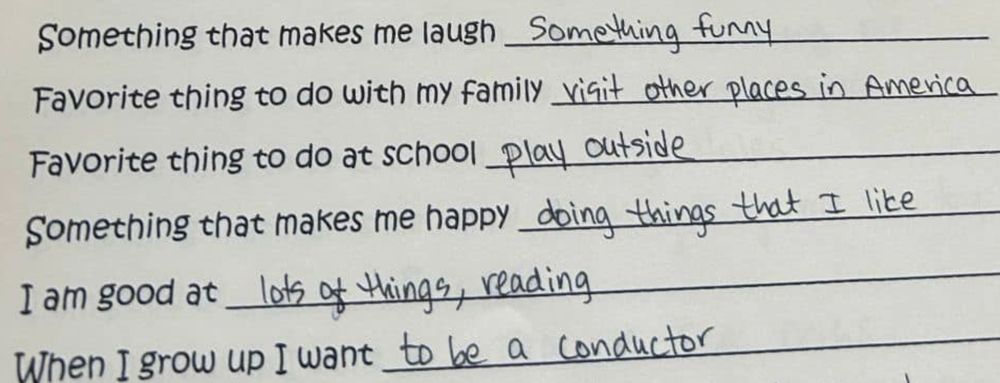 Something that makes me laugh Something funny
Favorite thing to do with my family visit other places in America
Favorite thing to do at school play outside
Something that makes me happy doing things that I like
I am good at lots of things, reading
When I grow up I want to be a conductor